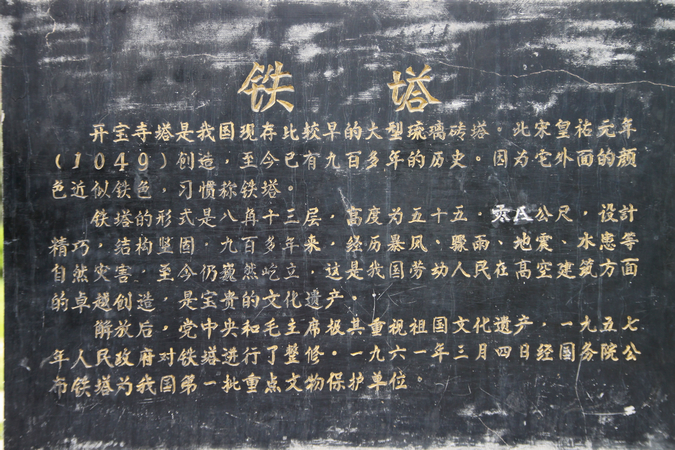 铁 塔
开宝寺塔是我国现存比较早的大型琉璃砖塔。此宋皇祐元年
(1049)创造，至今已有九百多年的历史。因为它外面的颜
色近似铁色，习惯称铁塔。
铁塔的形式是八角十三层，高度为五十五，公尺，设計
精巧，结构坚固，九百多年来，经历暴风、骤雨、地震、水患等
自然灾害，至今仍巍然屹立，这是我国劳动人民在高空建筑方面
的卓越创造，是宝贵的文化遗产。
解放后，党中央和毛主席极其重视祖国文化遗产，一九五七
年人民政府对铁塔进行了整修。一九六一年三月四日经国务院公
布铁塔为我国第一批重点文物保护单位。